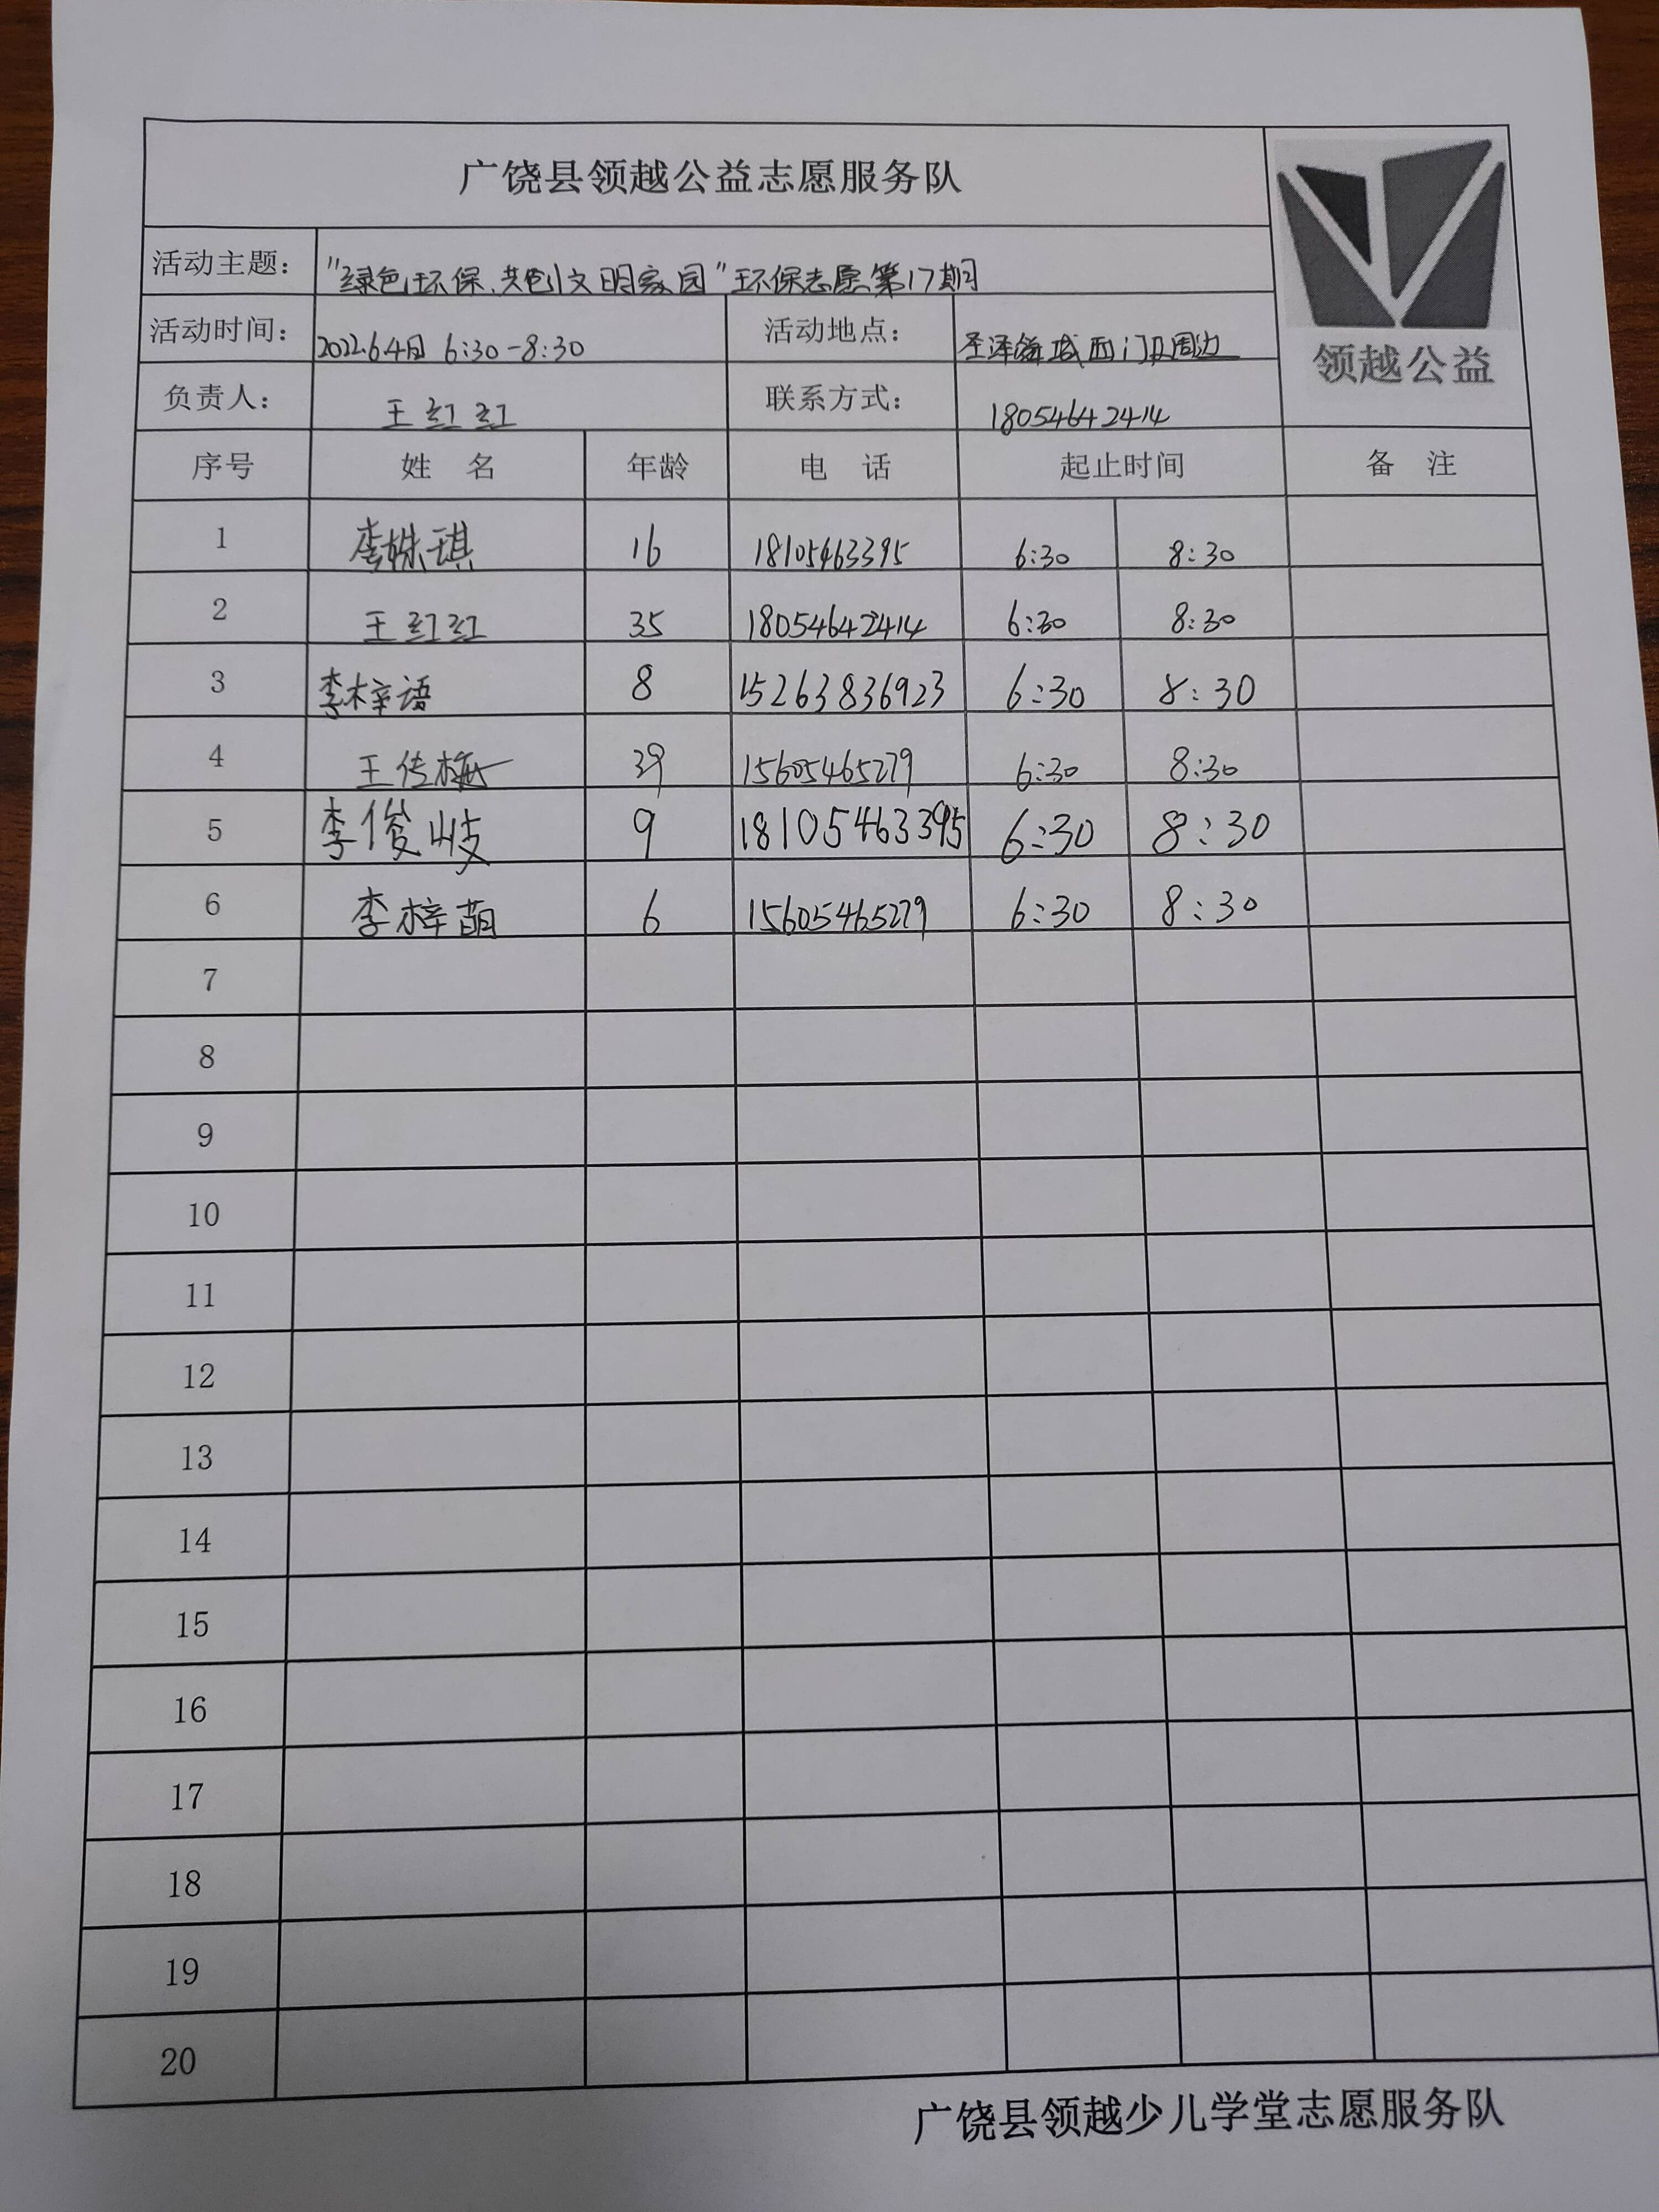 广饶县领越公益志愿服务队
领越公益
活动主题： "绿色环保、共创文明家园"环保志愿第17期
活动时间： 2022.6.4日 6:30-8:30 活动地点： 圣泽 城西门及周边
负责人： 王红红 联系方式： 18054642414
序号 姓 名 年龄 电 话 起止时间 备 注
1 李姝琪 16 18105463395 6:30 8:30
2 王红红 35 18054642414 6:30 8:30
3 李梓语 8 15263836923 6:30 8:30
4 王传梅 39 15605465279 6:30 8:30
5 李俊岐 9 18105463395 6:30 8:30
6 李梓萌 6 15605465279 6:30 8:30
7
8
9
10
11
12
13
14
15
16
17
18
19
20
广饶县领越少儿学堂志愿服务队